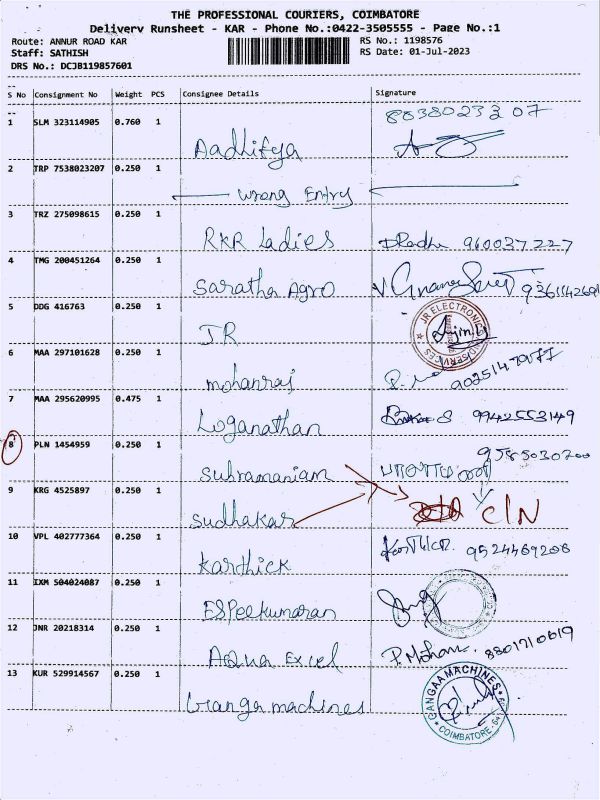 THE PROFESSIONAL COURIERS, COIMBATORE
Delivery Runsheet - KAR - Phone No.:0422-3505555 - Page No.:1
Route: ANNUR ROAD KAR RS No.: 1198576
Staff: SATHISH RS Date: 01-Jul-2023
DRS No.: DCJB119857601
S No Consignment No Weight PCS Consignee Details Signature
8838023307
1 SLM 323114905 0.760 1
Aadhitya
2 TRP 7538023207 0.250 1
wrong Entry
3 TRZ 275098615 0.250 1
RKR Ladies 960037227
4 TMG 200451264 0.250 1
Saratha Agro
5 DDG 416763 0.250 1
JR JR ELECTRONICS
6 MAA 297101628 0.250 1
mohanraj
7 MAA 295620995 0.475 1
Loganathan 9942553149
8 PLN 1454959 0.250 1 9585030700
Subramaniam
9 KRG 4525897 0.250 1
Sudhakar C/N
10 VPL 402777364 0.250 1
Karthick 9524469208
11 IXM 504024087 0.250 1
ESPeekumaran
12 JNR 20218314 0.250 1
Aqua Excel P. Mohan. 8801710619
13 KUR 529914567 0.250 1
Ganga machines GANGAA MACHINES COIMBATORE